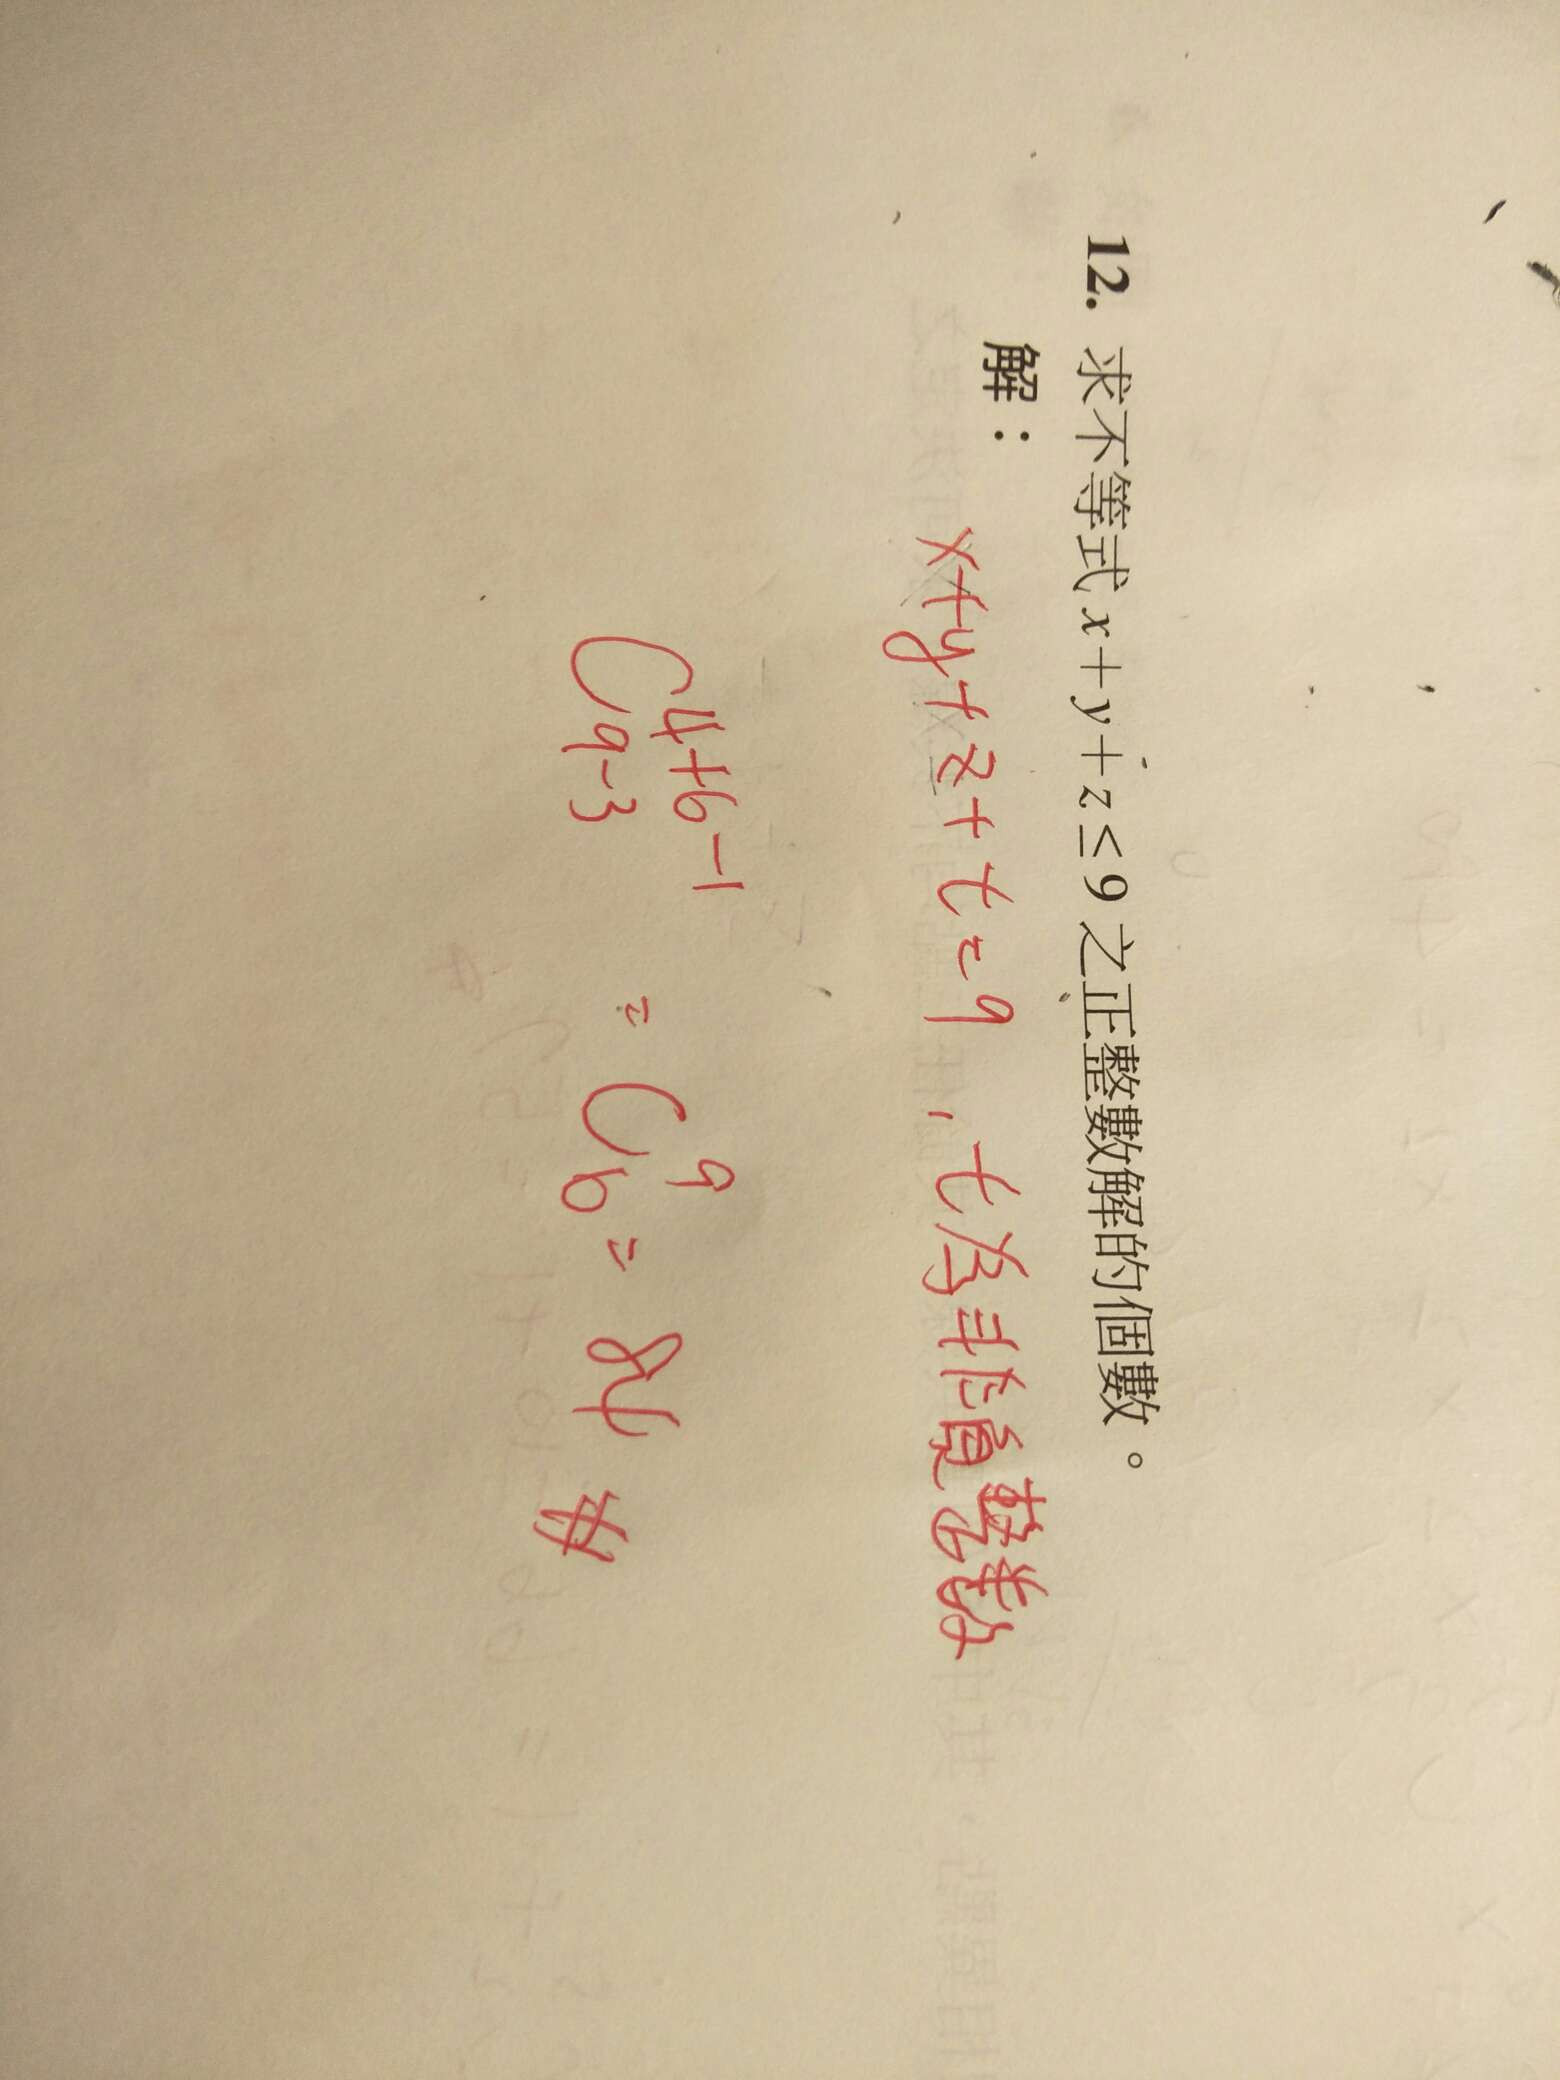 12. 求不等式 x+y+z≤9 之正整數解的個數。
解：
x+y+z+t=9，t為非負整數
C^{4+6-1}_{9-3} = C^9_6 = 84 #